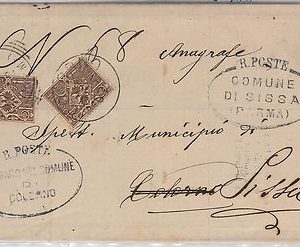 N 8 Anagrafe
R. POSTE
COMUNE
DI SISSA
(PARMA)
Spett. Municipio
di
R. POSTE
COMUNE
DI
Colorno Sissa